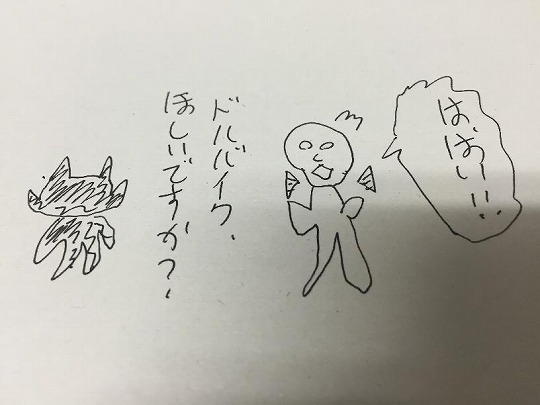 は、はい!!
ドルバイク、
ほしいですか?